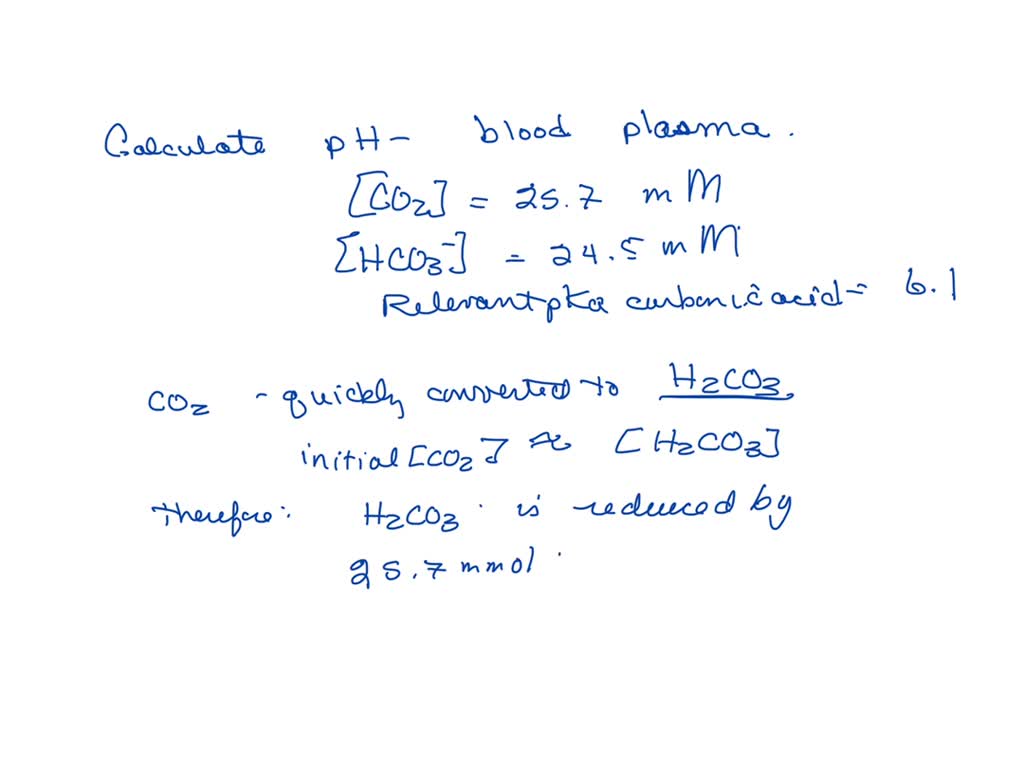 Calculate pH - blood plasma.
[CO2] = 25.7 mM
[HCO3-] = 24.5 mM
Relevant pKa carbonic acid = 6.1
CO2 - quickly converted to H2CO3.
initial [CO2] ≈ [H2CO3]
Therefore: H2CO3 is reduced by
25.7 mmol.